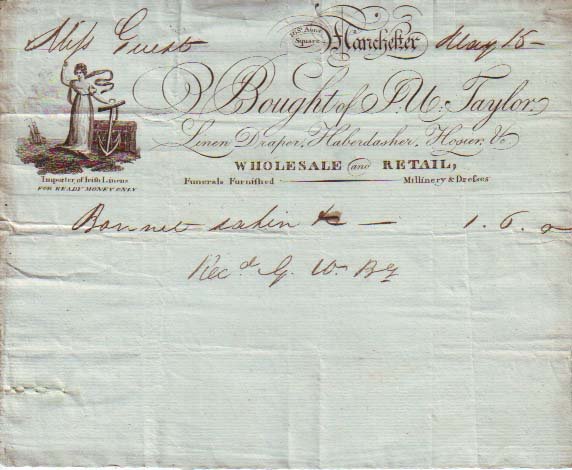 Miss Guest Sts. Anns Square Manchester May 15
Bought of J. U. Taylor,
Linen Draper, Haberdasher, Hosier, &c
WHOLESALE and RETAIL,
Importer of Irish Linens
FOR READY MONEY ONLY
Funerals Furnished Millinery & Dresses
Bonnet satin &c — 1. 6. 0
Recd. G. W.